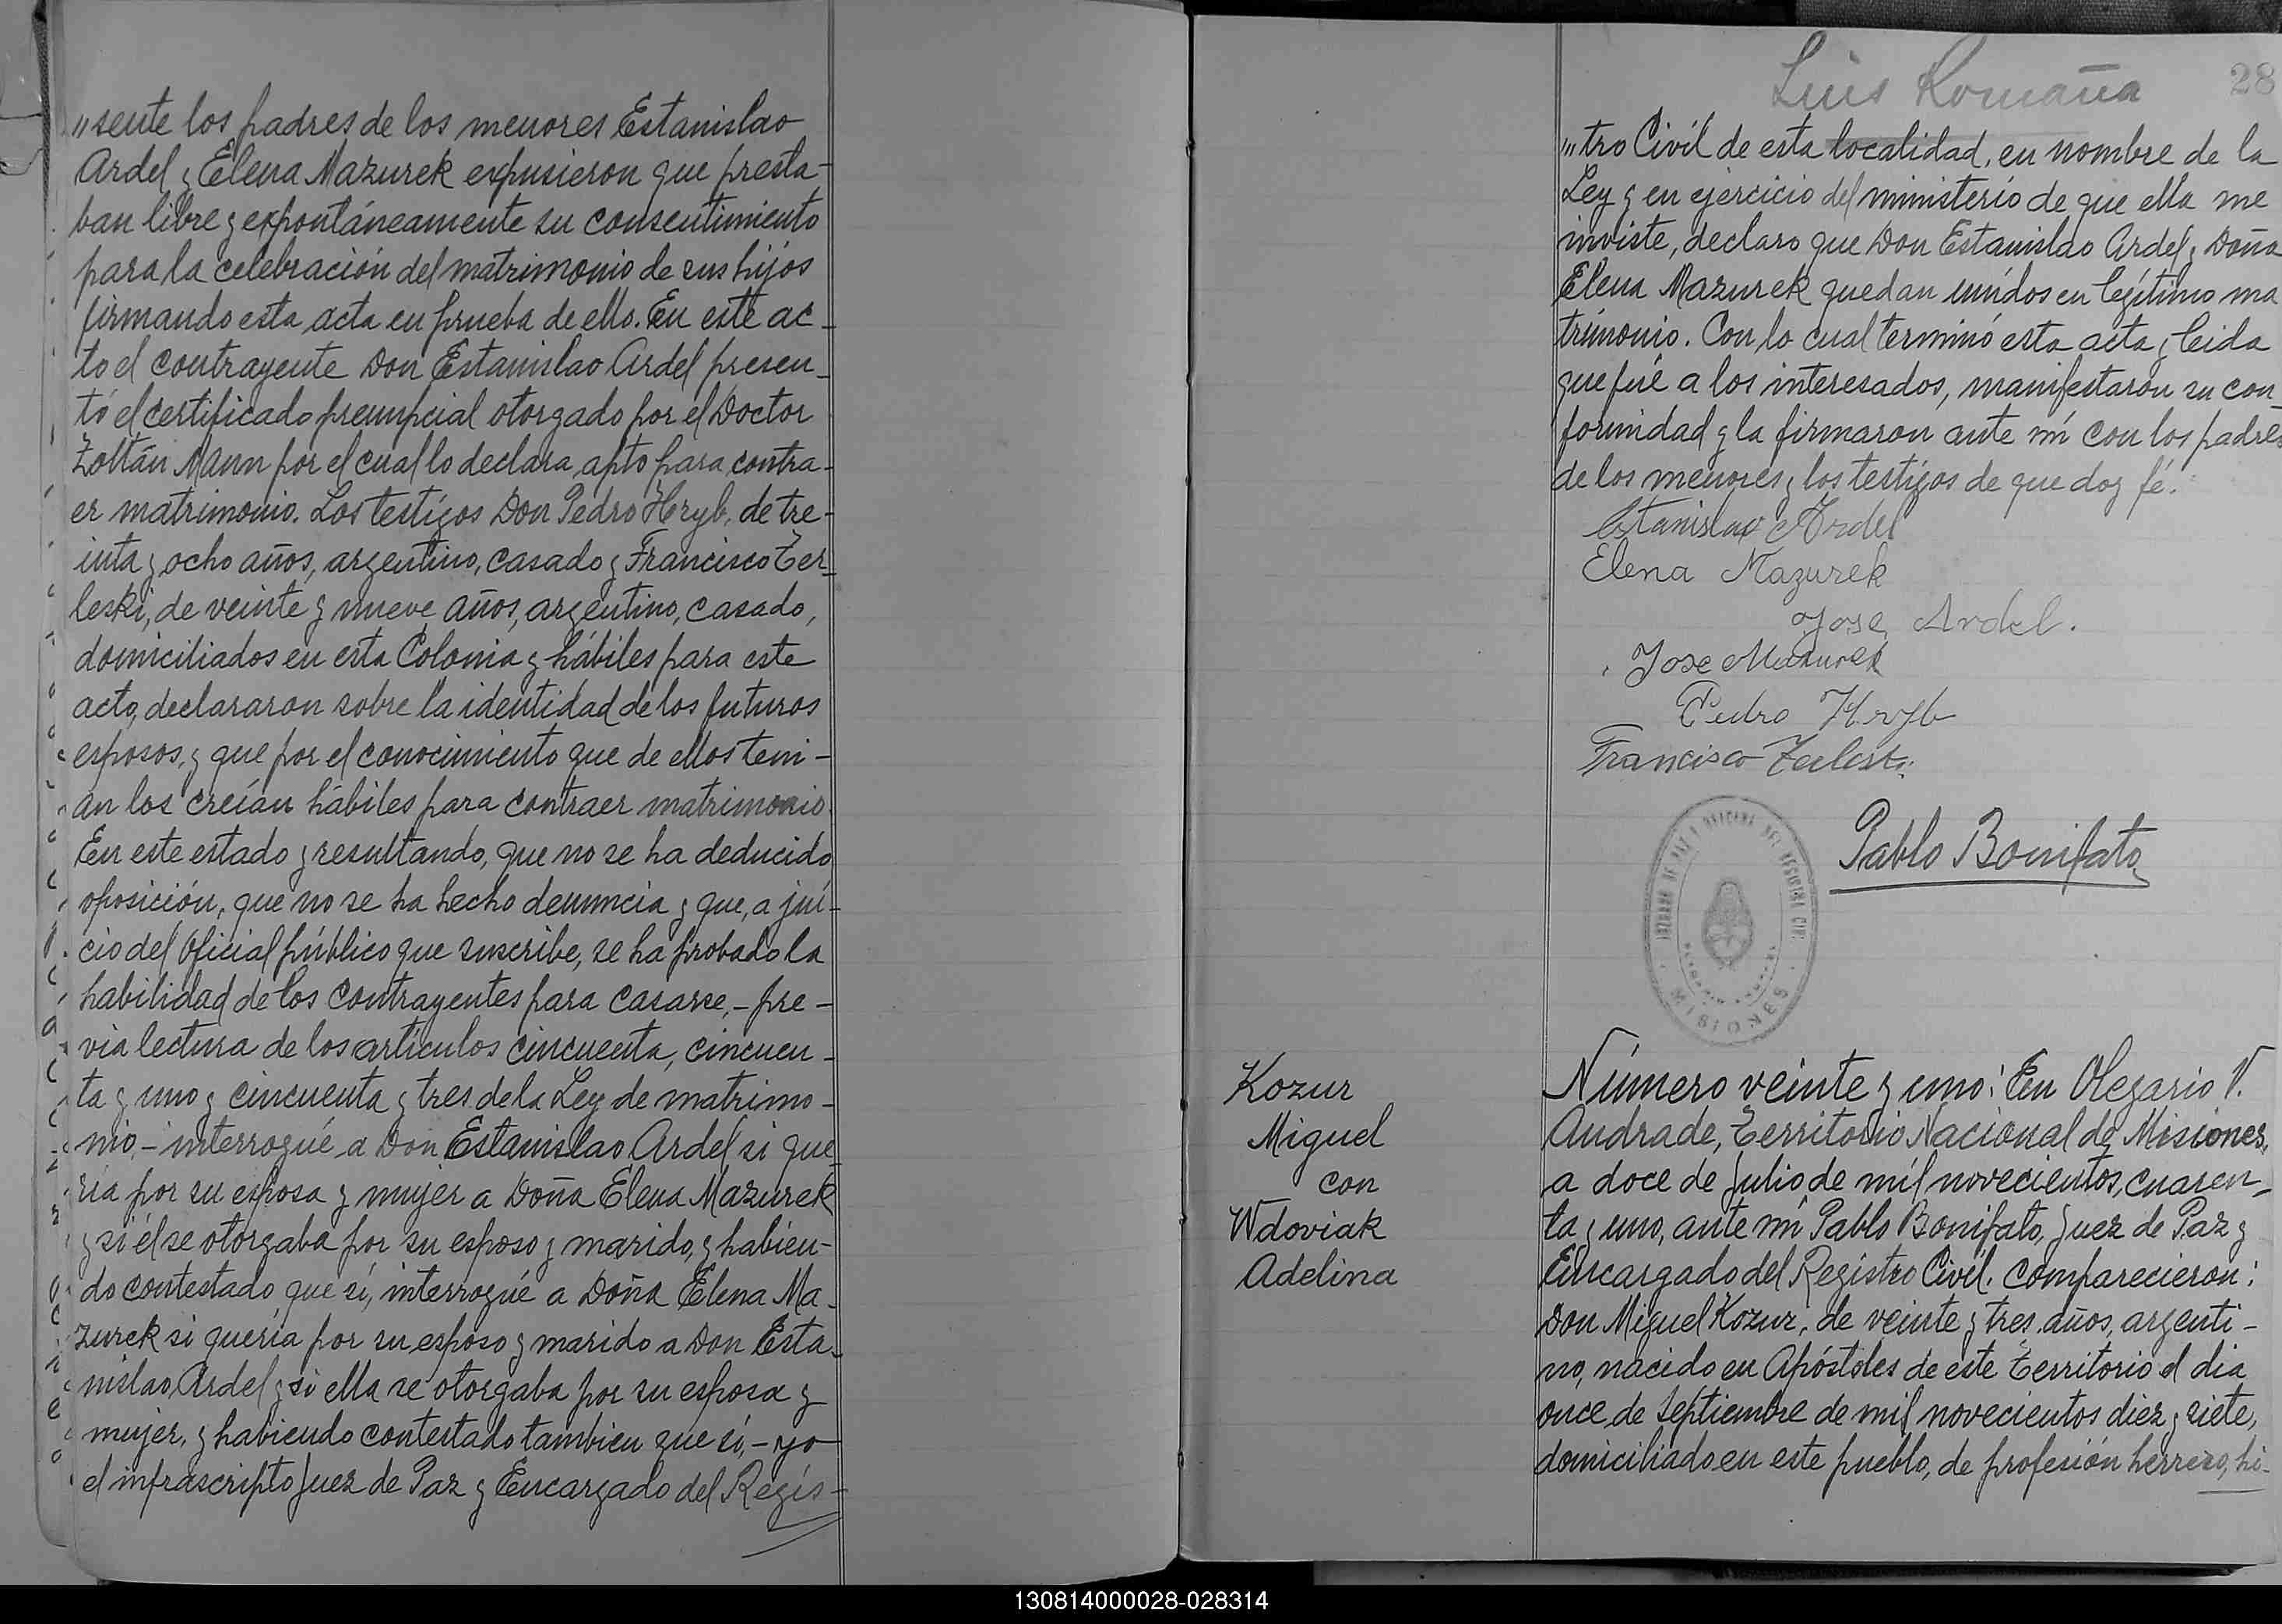 "sente los padres de los menores Estanislao
Ardel y Elena Mazurek expusieron que presta-
ban libre y expontáneamente su consentimiento
para la celebración del matrimonio de sus hijos
firmando esta acta en prueba de ello. En este ac-
to el contrayente Don Estanislao Ardel presen-
tó el certificado prenupcial otorgado por el Doctor
Zoltán Mann por el cual lo declara apto para contra-
er matrimonio. Los testigos Don Pedro Hryb, de tre-
inta y ocho años, argentino, casado y Francisco Ter-
leski, de veinte y nueve años, argentino, casado,
domiciliados en esta Colonia y hábiles para este
acto, declararon sobre la identidad de los futuros
esposos, y que por el conocimiento que de ellos teni-
an los creían hábiles para contraer matrimonio.
En este estado y resultando, que no se ha deducido
oposición, que no se ha hecho denuncia y que, a jui-
cio del Oficial público que suscribe, se ha probado la
habilidad de los contrayentes para casarse,- pre-
via lectura de los artículos cincuenta, cincuen-
ta y uno y cincuenta y tres de la Ley de matrimo-
nio,- interrogué a Don Estanislao Ardel si que-
ría por su esposa y mujer a Doña Elena Mazurek
y si él se otorgaba por su esposo y marido, y habien-
do contestado que sí, interrogué a Doña Elena Ma-
zurek si quería por su esposo y marido a Don Esta-
nislao Ardel y si ella se otorgaba por su esposa y
mujer, y habiendo contestado tambien que sí,- yo
el infrascripto Juez de Paz y Encargado del Regis-
Luis Romaña
28
"tro Civil de esta localidad, en nombre de la
Ley y en ejercicio del ministerio de que ella me
inviste, declaro que Don Estanislao Ardel y Doña
Elena Mazurek quedan unidos en legítimo ma
trimonio. Con lo cual terminó esta acta y leida
que fué a los interesados, manifestaron su con-
formidad y la firmaron ante mí con los padres
de los menores y los testigos de que doy fé.
Estanislao Ardel
Elena Mazurek
Jose Ardel.
Jose Mazurek
Pedro Hryb
Francisco
Pablo Bonifato
JUZGADO DE PAZ Y OFICINA DEL REGISTRO CIVIL
MISIONES
Kozur
Miguel
con
Wdoviak
Adelina
Número veinte y uno: En Olegario V.
Andrade, Territorio Nacional de Misiones,
a doce de Julio de mil novecientos cuaren-
ta y uno, ante mí Pablo Bonifato, Juez de Paz y
Encargado del Registro Civil. comparecieron:
Don Miguel Kozur, de veinte y tres años, argenti-
no, nacido en Apóstoles de este Territorio el dia
once de Septiembre de mil novecientos diez y siete,
domiciliado en este pueblo, de profesión herrero, hi-
130814000028-028314